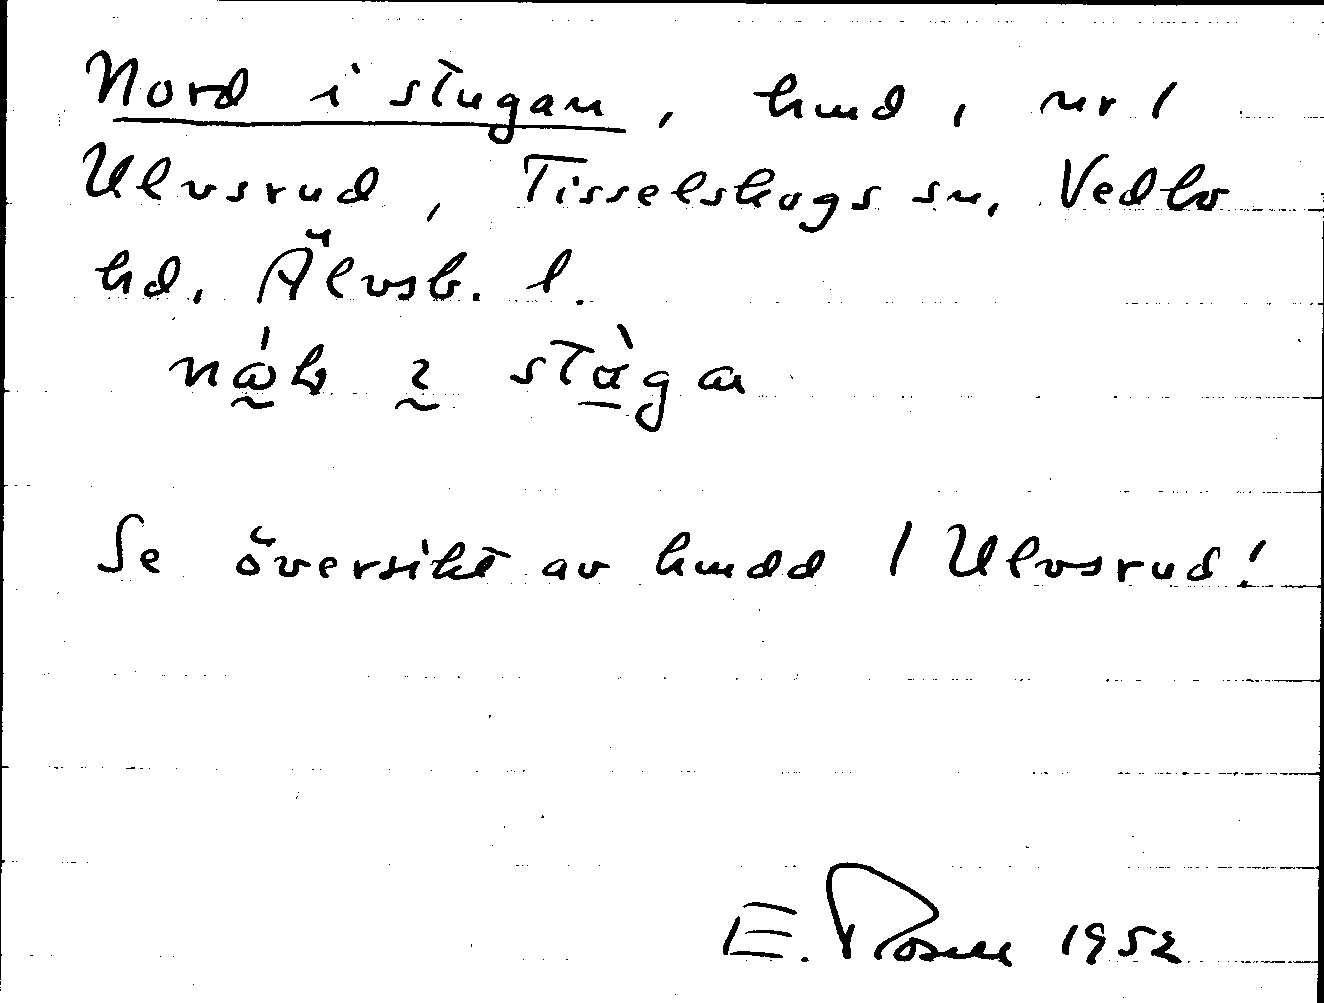 Nord i stugan, hmd, nr 1
Ulvsrud, Tisselskogs sn, Vedbo
hd, Älvsb. l.
Se översikt av hmdd 1 Ulvsrud!
E. Rosell 1952